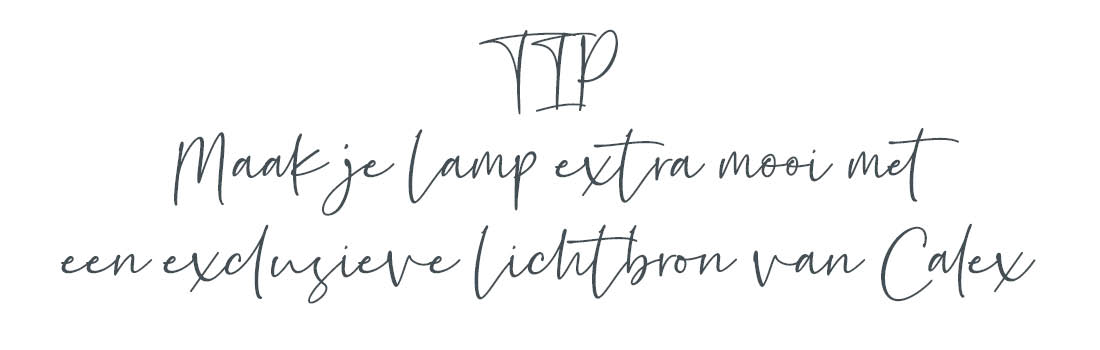 TIP
Maak je lamp extra mooi met
een exclusieve lichtbron van Calex